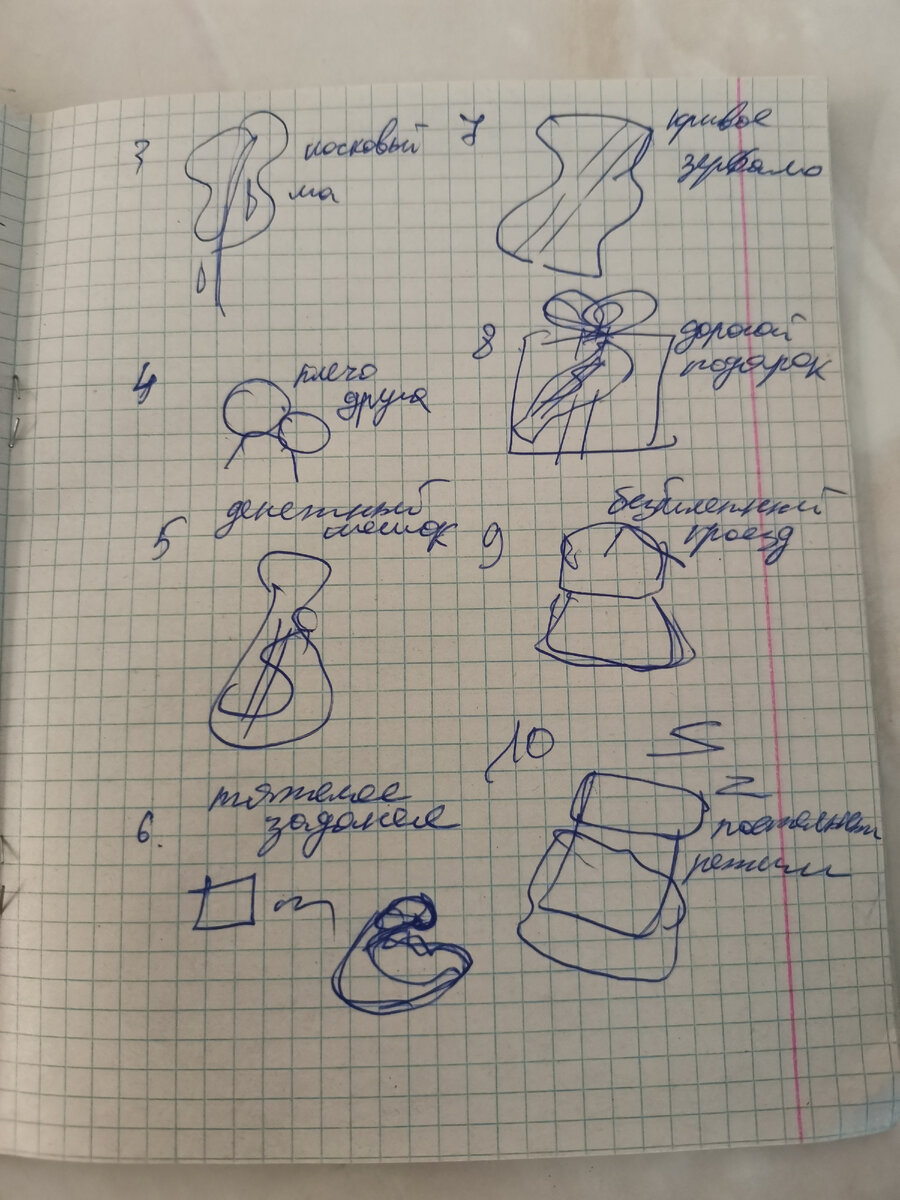 3
носковый
ма
4
плечо
друга
5
денежный
мешок
6.
тяжелое
задание
7
кривое
зеркало
8
дорогой
подарок
9
безбилетный
проезд
10
z
постельный
режим